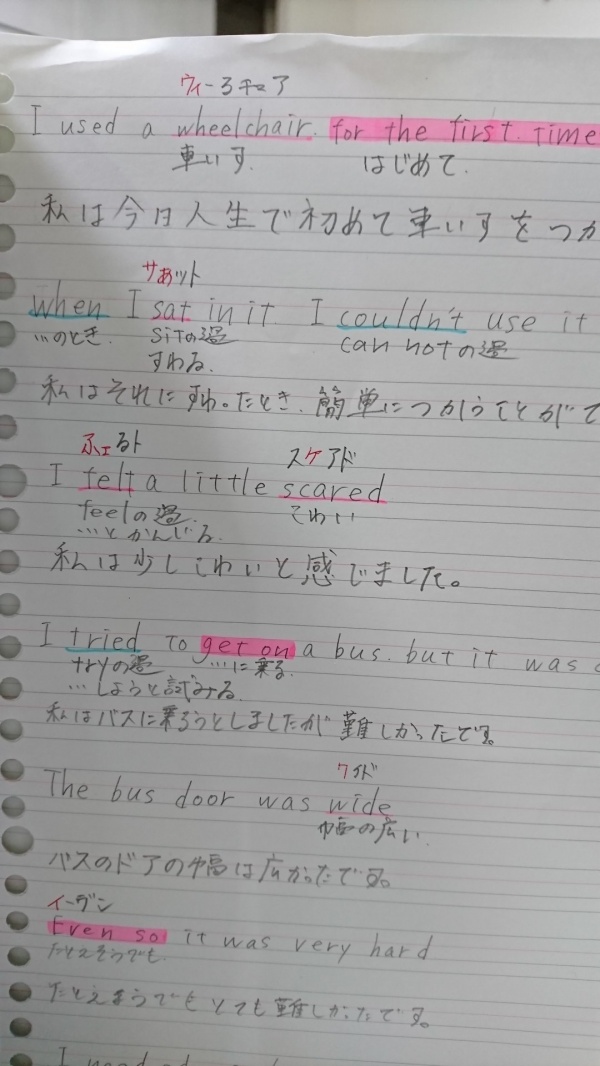 ウィーるチェア
I used a wheelchair. for the first time
車いす. はじめて.
私は今日人生で初めて車いすをつか
サあット
when I sat in it I couldn't use it
…のとき. sitの過 can notの過
すわる.
私はそれにすわったとき、簡単につかうことがで
ふェるト スケアド
I felt a little scared
feelの過 こわい
…とかんじる.
私は少しこわいと感でました。
I tried to get on a bus. but it was
tryの過 …に乗る.
…しようと試みる.
私はバスに乗ろうとしましたが難しかったです。
ワイド
The bus door was wide
幅の広い.
バスのドアの幅は広かったです。
イーブン
Even so it was very hard
たとえそうでも.
たとえそうでもとても難しかったです。